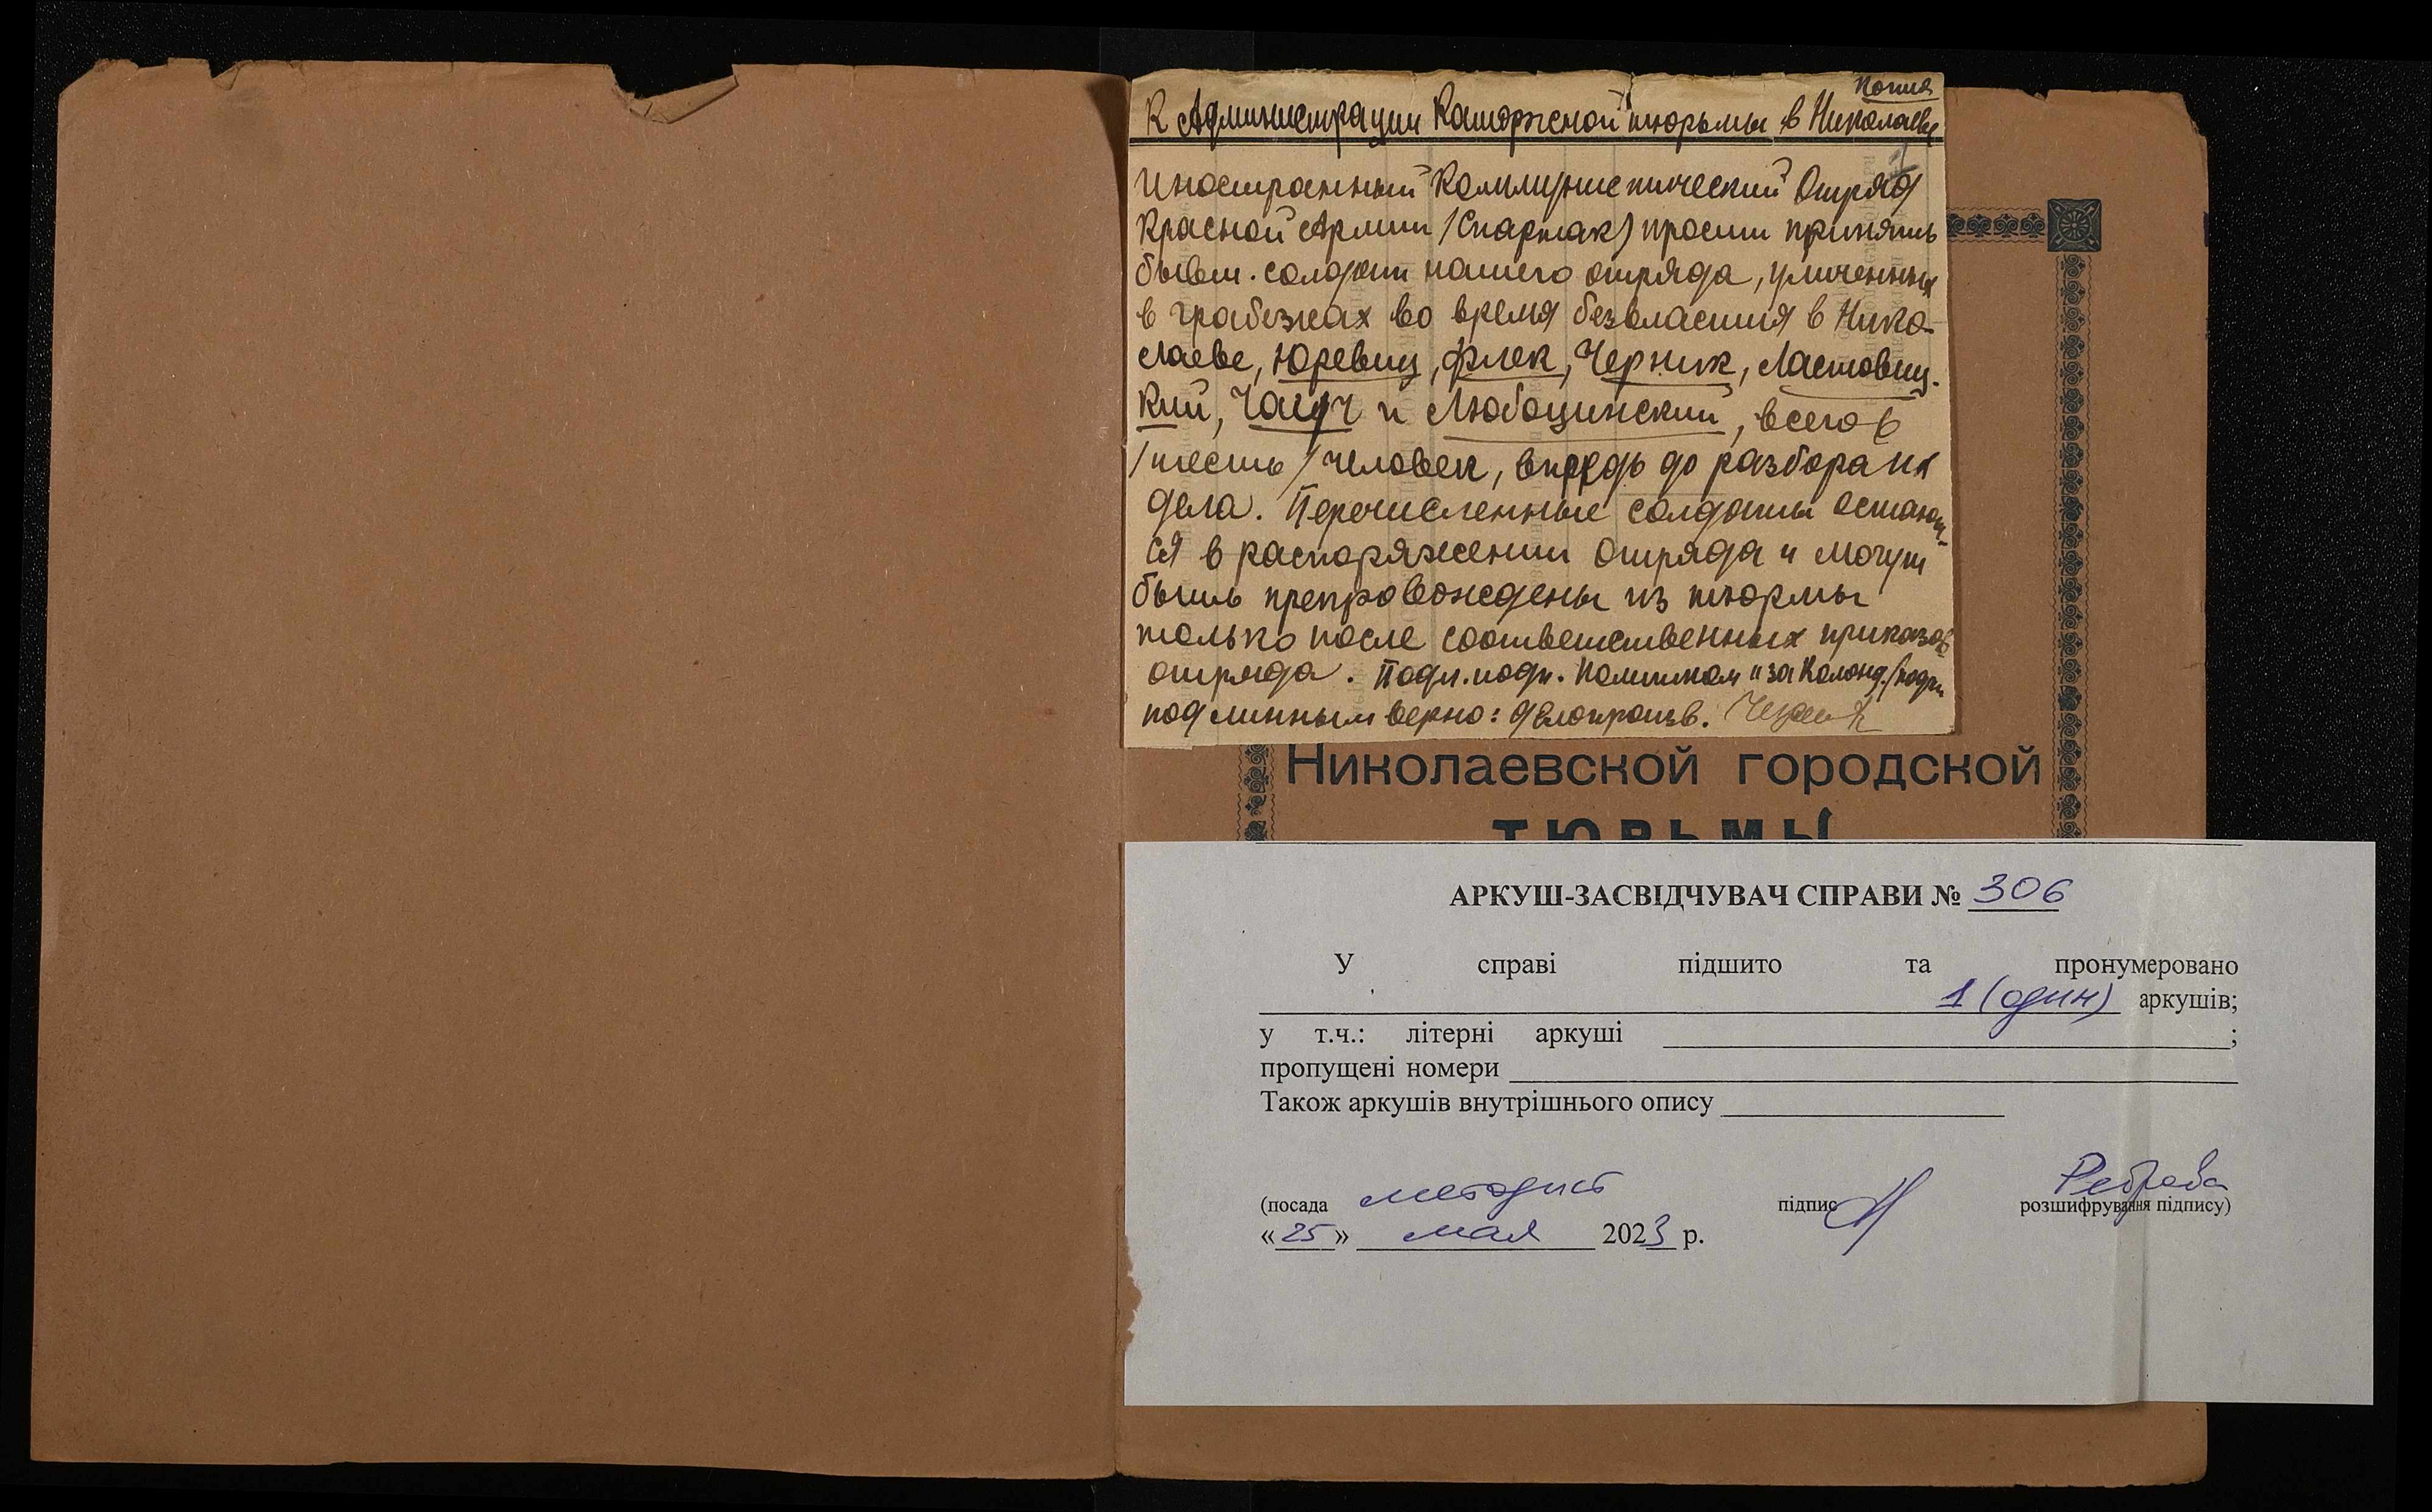 Копия
К Администрации Каторжной тюрьмы в Николаеве
Иностранный Коммунистический Отряд
Красной Армии /Спартак/ просит принять
бывш. солдат нашего отряда, уличенных
в грабежах во время безвластия в Нико-
лаеве, Юревиц, Флек, Черник, Ластовиц-
кий, Чагуч и Любощинский, всего 6
/шесть/ человек, впредь до разбора их
дела. Перечисленные солдаты остают-
ся в распоряжении отряда и могут
быть препровождены из тюрмы
только после соответственных приказов
отряда. Подл. подп. Политком и за Команд. /подпи
подлинным верно: делопроизв.
Николаевской городской
ТЮРЬМЫ
АРКУШ-ЗАСВІДЧУВАЧ СПРАВИ № 306
У справі підшито та пронумеровано
1 (один) аркушів;
у т.ч.: літерні аркуші ;
пропущені номери
Також аркушів внутрішнього опису
(посада методист підпис Реброва розшифрування підпису)
«25» мая 2023 р.